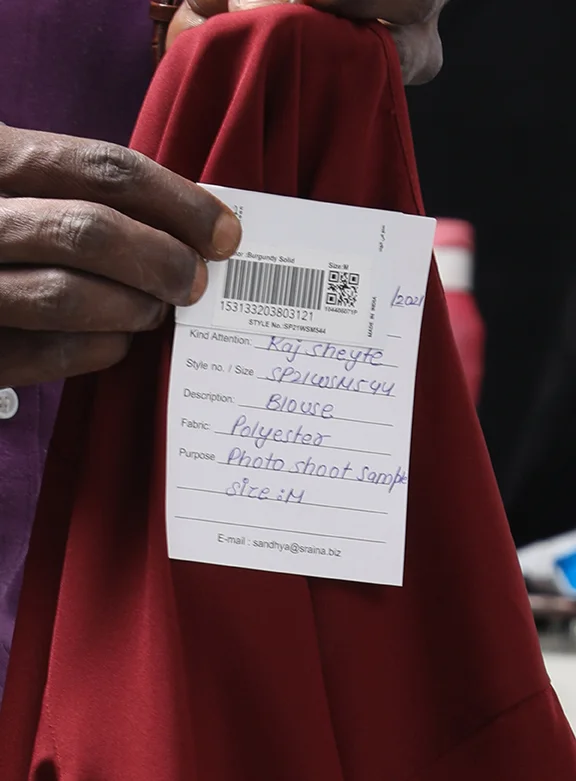 or :Burgundy Solid
Size:M
153133203803121
STYLE No.:SP21WSM544
MADE IN INDIA
/2021
Kind Attention: Raj sheyte
Style no. / Size SP21WSM544
Description: Blouse
Fabric: Polyester
Purpose Photo shoot Sample
Size :M
E-mail : sandhya@sraina.biz